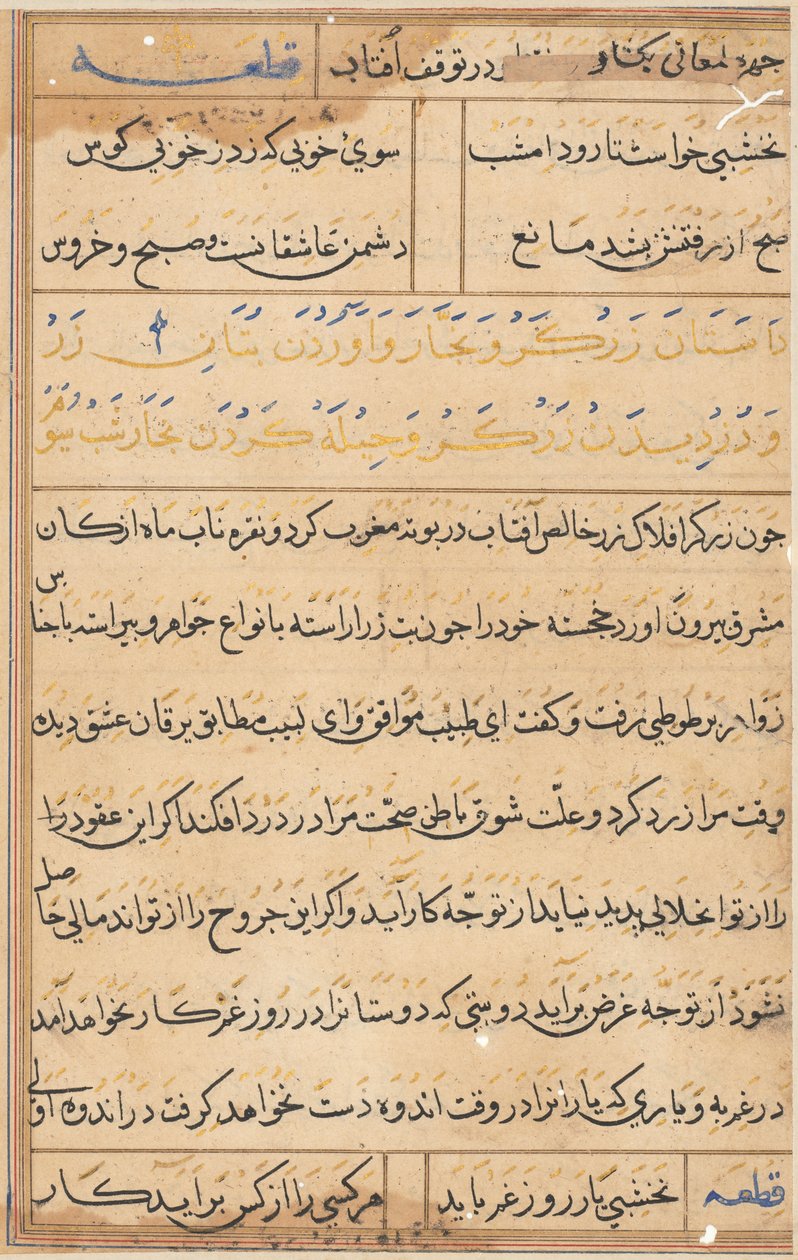 چهره لمعانی بکشاد در توقف افتاب قطعه
نخشبی خواست تا رود امشب سوئ خوبی که زد ز خوبی کوس
صبح از رفتنش بشد مانع دشمن عاشقانست و صبح و خروس
داستان زرکر و نجار و اوردن بتان زر
و دزدیدن زرکر و حیله کردن نجار شب سوم
چون زرکر افلاک زر خالص افتاب در بوته مغرب کرد و نقره ناب ماه از کان
مشرق بیرون اورد خجسته خود را چون بت زر اراسته بانواع جواهر و پیراسته باجناس
زواهر بر طوطی رفت و کفت ای طبیب موافق وای لبیب مطابق یرقان عشق دیده
وقت مرا زرد کرد و علّت شوق باطن صحّت مرا در درد افکند اکر این عقود را
را از تو انحلالی پدید نیاید از توجّه کار آید و اکر این جروح را از تو اندمالی حاصل
نشود از توجّه غرض براید دوستی که دوستانرا در روز غم کار نخواهد آمد
در غم به و یاری که یارانرا در وقت اندوه دست نخواهد کرفت در اندوه اولی
قطعه نخشبی یار روز غم باید هر کسی را از کس براید کار